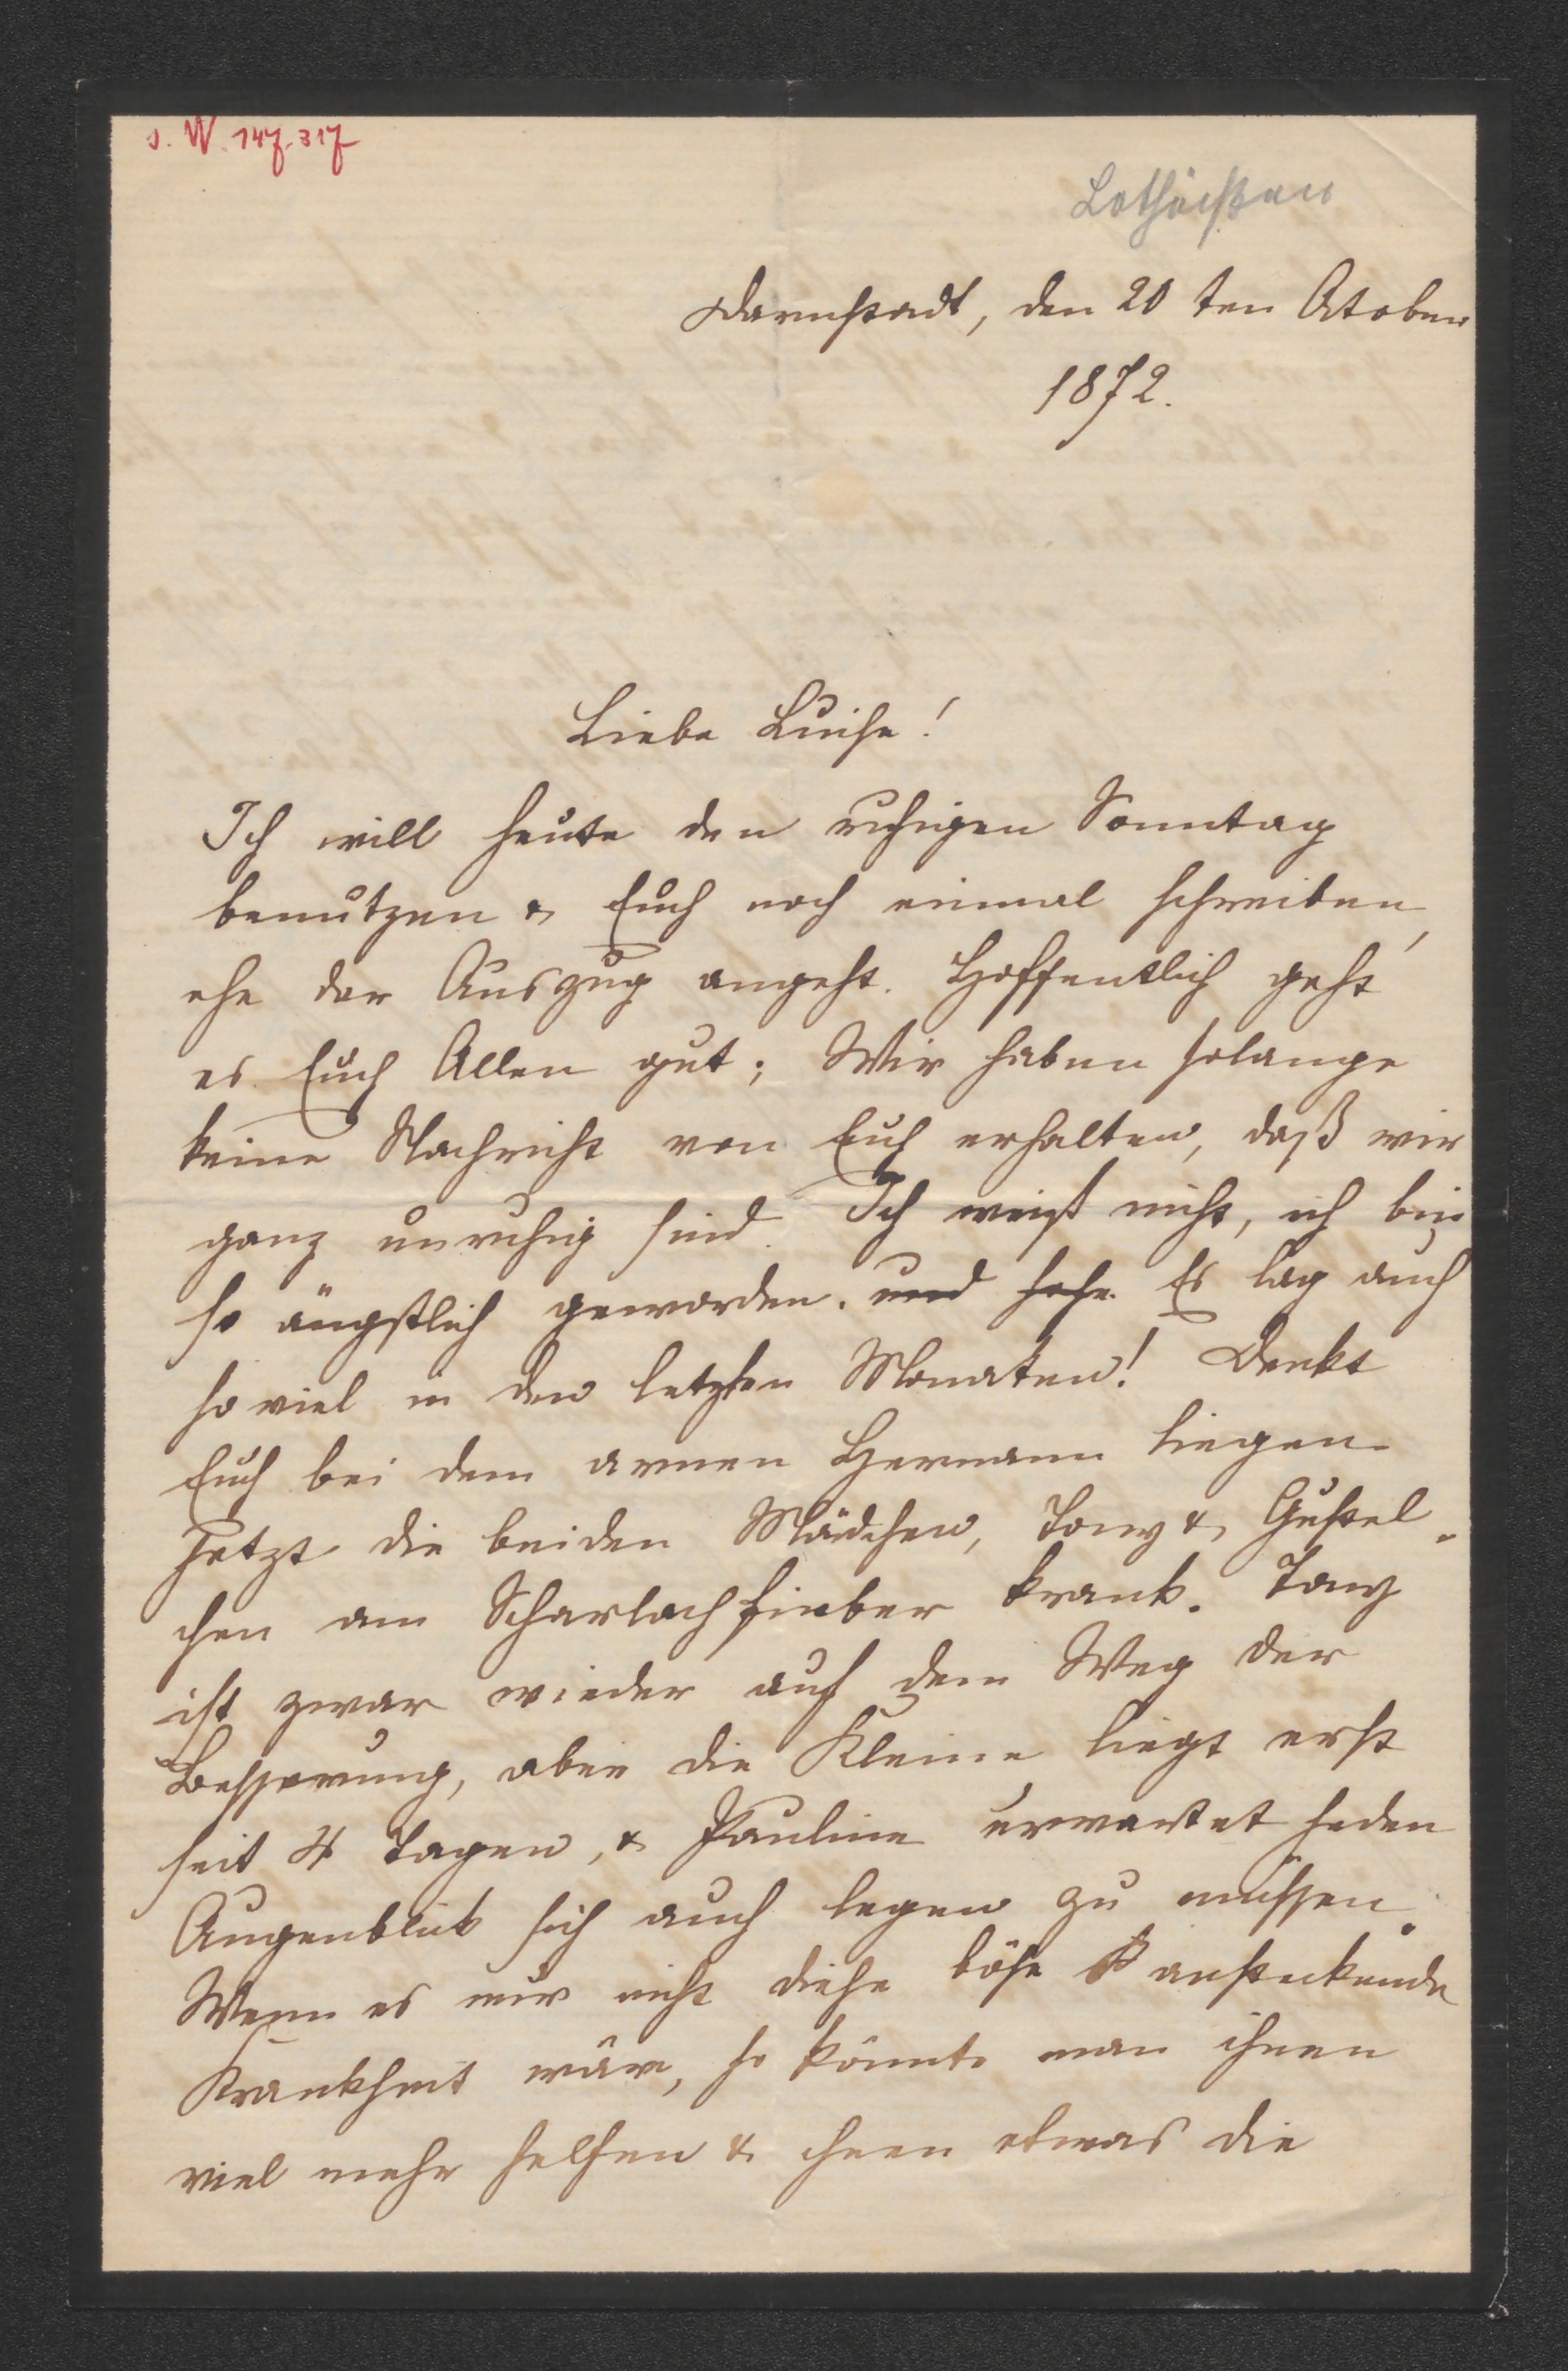 s. W. 147.317
Lotheißen
Darmstadt, den 20 ten Otober
1872.
Liebe Luise!
Ich will heute den ruhigen Sonntag
benutzen & Euch noch einmal schreiben,
ehe der Auszug angeht. Hoffentlich geht
es Euch Allen gut; Wir haben solange
keine Nachricht von Euch erhalten, daß wir
ganz unruhig sind. Ich weiß nicht, ich bin
so ängstlich geworden. und sehe Es lag auch
so viel in den letzten Monaten! Denkt
Euch bei dem armen Hermann liegen
jetzt die beiden Mädchen, Tony & Gustel-
chen am Scharlachfieber krank. Tony
ist zwar wieder auf dem Weg der
Besserung, aber die Kleine liegt erst
seit 4 Tagen, & Pauline erwartet jeden
Augenblick sich auch legen zu müssen.
Wenn es nur nicht diese böse ansteckende
Krankheit wäre, so könnte man ihnen
viel mehr helfen & ihnen etwas die